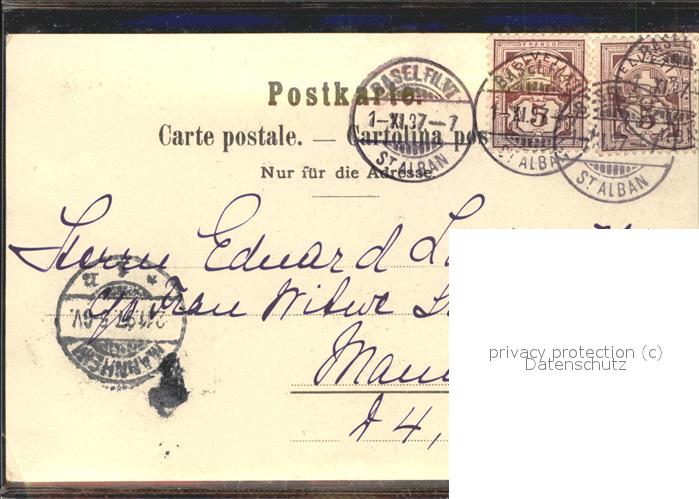 FRANCO
HELVETIA HELVETIA
5 5
BASEL FIL. VI
Postkarte.
1-XI.97-7
Carte postale. — Cartolina pos
ST ALBAN ST ALBAN ST ALBAN
Nur für die Adresse
Herrn Eduard
c/o Frau Witwe
MANNHEIM
privacy protection (c)
Datenschutz
Mann
D 4,